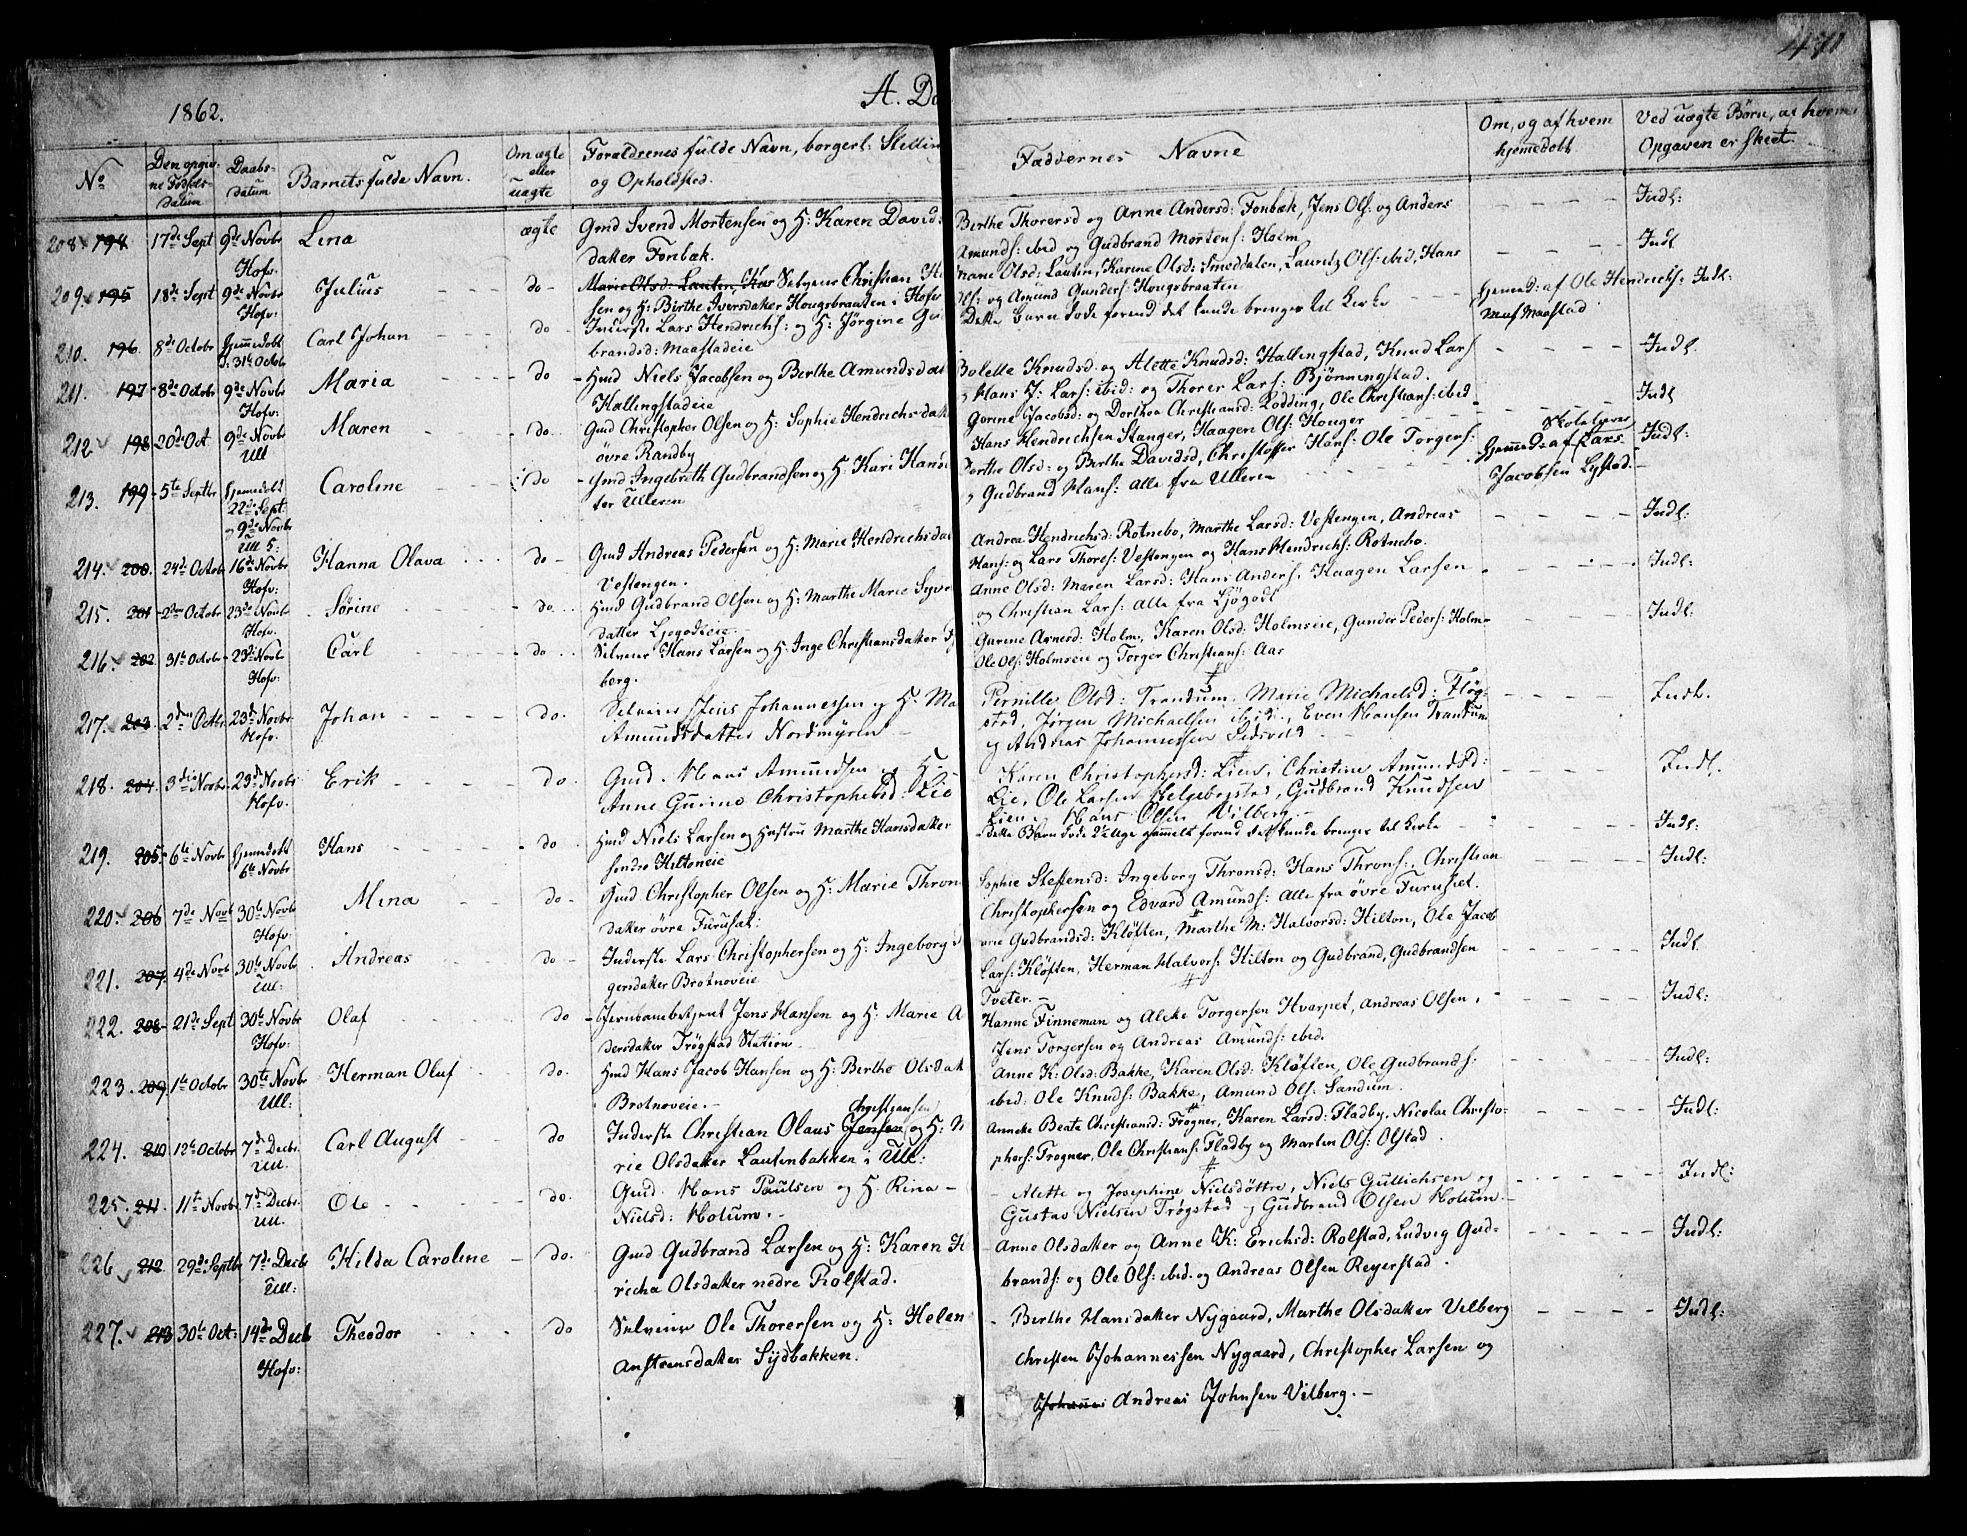 471
1862.
A. Dø
No
Den opgivne Fødsels-datum
Daabs-datum
Barnets fulde Navn.
Om ægte eller uægte
Forældrenes fulde Navn, borgerl: Stilling og Opholdsted.
Faddernes Navne
Om, og af hvem hjemedøbt
Ved uægte Børn, af hvem Opgaven er skeet.
208 194 17de Sept 9de Novbr Hofv. Lina ægte Gmd Svend Mortensen og H: Karen David:
datter Fonbæk.
Berthe Thorersd og Anne Andersd: Fonbæk, Jens Ols: og Anders
Amunds: ibid og Gudbrand Mortens: Holm
Indl:
209 195 18de Sept 9de Novbr Hofv: Julius do Marie Olsd: Lauten, Kar Selveier Christian
sen og H: Berthe Iversdatter Hougsbraaten i Hofv
Olsd: Lauten, Karine Olsd: Smeddalen, Lauritz Ols: ibid, Hans
Ols: og Amund Gunders: Hougsbraaten
Indl
210. 196 8de Octobr Hjemmedøbt 31te Octobr Carl Johan do Inderste Lars Hendrichs: og H: Jørgine Gud
brandsd: Maastadeie
Dette Barn døde forend det kunde bringes til Kirke
Hjemed: af Ole Hendrichs: Maastad
Indl:
211. 197 8de Octobr 9de Novbr Hofv: Maria do Hmd Niels Jacobsen og Berthe Amundsdat
Hallingstadeie
Bolette Knudsd. og Alette Knudsd: Hallingstad, Knud Lars
Hans J. Lars: ibid: og Thorer Lars: Bjønningstad.
Indl.
212 198 20de Oct 9de Novbr Ull Maren do Gmd Christopher Olsen og H: Sophie Hendrichsdat
øvre Randby
Gorine Jacobsd: og Dorthea Christiansd: Lodding, Ole Christians: ibid
Hans Hendrichsen Stanger, Haagen Ols: Houger
Indl
213. 199 5te Septbr Hjemedøbt 22de Sept. 9de Novbr Ull Caroline do Gmd Ingebreth Gudbrandsen og H: Kari Hans
ter Ulleren
Berthe Olsd: og Berthe Davidsd, Christoffer Hans: Ole Torgers:
Gudbrand Hans: alle fra Ulleren
Skolelærer
Hjemmed: af Lars
Jacobsen Lystad.
Indl:
214. 200. 24de Octobr 16de Novbr Hofv: Hanna Olava do Gmd Andreas Pedersen og H: Marie Hendrichsdat
Vestengen.
Andrea Hendrichsd: Rotnebo, Marthe Larsd: Vestengen, Andreas
Hans: og Lars Thores: Vestengen og Hans Hendrichs: Rotnebo.
Indl:
215. 201 2den Octobr 23de Novbr Hofv. Sørine do Hmd Gudbrand Olsen og H: Marthe Marie Syver
datter Ljøgodteie
Anne Olsd: Maren Larsd: Hans Anders. Haagen Larsen
og Christian Lars: alle fra Ljøgodt
Indl:
216. 202 31te Octobr 23de Novbr Hofv: Carl do Selveier Hans Larsen og H: Inge Christiansdatter
berg.
Gurine Arnesd: Holm, Karen Olsd: Holmseie, Gunder Peders: Holm
Ole Ols: Holmseie og Torger Christians: Aas
Indl:
217. 203 2den Octbr. 23de Novbr. Hofv. Johan do. Selveier Jens Johannessen og H. Ma
Amundsdatter Nordmyren
Pernille Olsd: Trandum, Marie Michaelsd: Fløg-
stad, Jørgen Michaelsen ibid, Even Hansen Trandum
og Andreas Johannessen
Indl.
218. 204. 3die Novbr. 23de Novbr Hofv. Erik do. Gmd. Hans Amundsen og H
Anne Gurine Christophersd: Lie
Karen Christophersd: Lien, Christine Amundsd:
Lie, Ole Larsen Helgebøstad, Gudbrand Knudsen
Lien, Hans Olsen Vilberg.
Indl.
219. 205. 6te Novbr Hjemmedøbt 6te Novbr Hans do Hmd Niels Larsen og Hustru Marthe Hansdatter
søndre Hiltoneie
dette Barn døde 2 Uger gammelt forend det kunde bringes til Kirke
Indl:
220. 206 7de Novb 30te Novbr Hofv: Mina do Gmd Christopher Olsen og H: Marie Thron
datter øvre Furuset:
Sophie Steffensd: Ingeborg Thronsd: Hans Throns: Christian
Christophersen og Edvard Amunds: alle fra øvre Furuset.
Indl:
221. 207. 4de Novb 30te Novbr Ull: Andreas do Inderste Lars Christophersen og H: Ingeborg
gersdatter Brotnoveie
Gudbrandsd: Kløften, Marthe M: Halvorsd: Hilton, Ole Jacob
Lars: Kløften, Herman Halvors: Hilton og Gudbrand, Gudbrandsen
Tveter.
Indl
222. 208 21de Sept 30te Novbr Hofv: Olaf do Jernbanebetjent Jens Hansen og H: Marie A
dersdatter Trøgstad Station
Hanne Finneman og Aleke Torgersen Hvarpet, Andreas Olsen,
Jens Torgersen og Andreas Amunds: ibid.
Indl:
223. 209 1te Octobr 30te Novbr Ull: Herman Oluf do. Hmd Hans Jacob Hansen og H: Berthe Olsdat
Brotnoveie.
Anne K: Olsd: Bakke, Karen Olsd: Kløften, Ole Gudbrands:
ibid: Ole Knuds: Bakke, Amund Ols: Sandum.
Indl:
224. 210 12te Octobr 7de Decbr. Ull. Carl August do Inderste Christian Olaus Jensen Christiansen og H: M
rie Olsdatter Lautenbakken i Ull:
Anneke Beate Christiansd: Frogner, Karen Larsd: Fladby, Nicolai Christo-
phers: Frogner, Ole Christians: Fladby og Martin Ols: Olstad
Indl:
225. 211. 11te Novbr 7de Decbr. Ull. Ole do. Gmd. Hans Paulsen og H. Rina
Nielsd: Holum.
Alette og Josephine Nielsdøttre, Niels Gullichsen og
Gustav Nielsen Trøgstad og Gudbrand Olsen Holum.
Indl:
226 212 29de Septbr 7de Decbr Ull: Hilda Caroline do. Gmd Gudbrand Larsen og H: Karen H
richa Olsdatter nedre Rolstad.
Anne Olsdatter og Anne K: Erichsd: Rolstad, Ludvig Gud-
brands: og Ole Ols: ibid. og Andreas Olsen Reyerstad.
Indl:
227. 213 30te Oct: 14de Decb Hofv: Theodor do Selveier Ole Thorersen og H: Helen
Anstensdatter Sydbakken.
Berthe Hansdatter Nygaard, Marthe Olsdatter Vilberg
Christen Johannessen Nygaard, Christopher Larsen og
Johannes Andreas Johnsen Vilberg.
Indl: